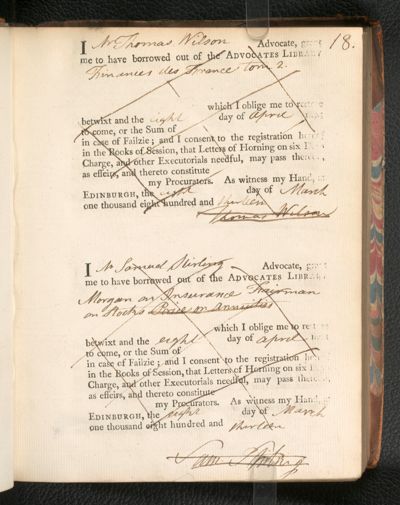 18.
I Mr Thomas Wilson Advocate, grant
me to have borrowed out of the ADVOCATES LIBRARY
Finances des France Tom 2.
which I oblige me to restore
betwixt and the eight day of April next
to come, or the Sum of
in case of Failzie; and I consent to the registration hereof
in the Books of Session, that Letters of Horning on six
Charge, and other Executorials needful, may pass thereon,
as effeirs, and thereto constitute
my Procurators. As witness my Hand, at
EDINBURGH, the eight day of March
one thousand eight hundred and thirteen
Thomas Wilson
I Mr Samuel Stirling Advocate, grant
me to have borrowed out of the ADVOCATES LIBRARY
Morgan on Insurance
on Stocks Price on Annuities
which I oblige me to restore
betwixt and the eight day of april next
to come, or the Sum of
in case of Failzie; and I consent to the registration
in the Books of Session, that Letters of Horning on six
Charge, and other Executorials needful, may pass thereon,
as effeirs, and thereto constitute
my Procurators. As witness my Hand, at
EDINBURGH, the eight day of March
one thousand eight hundred and thirteen
Sam Stirling